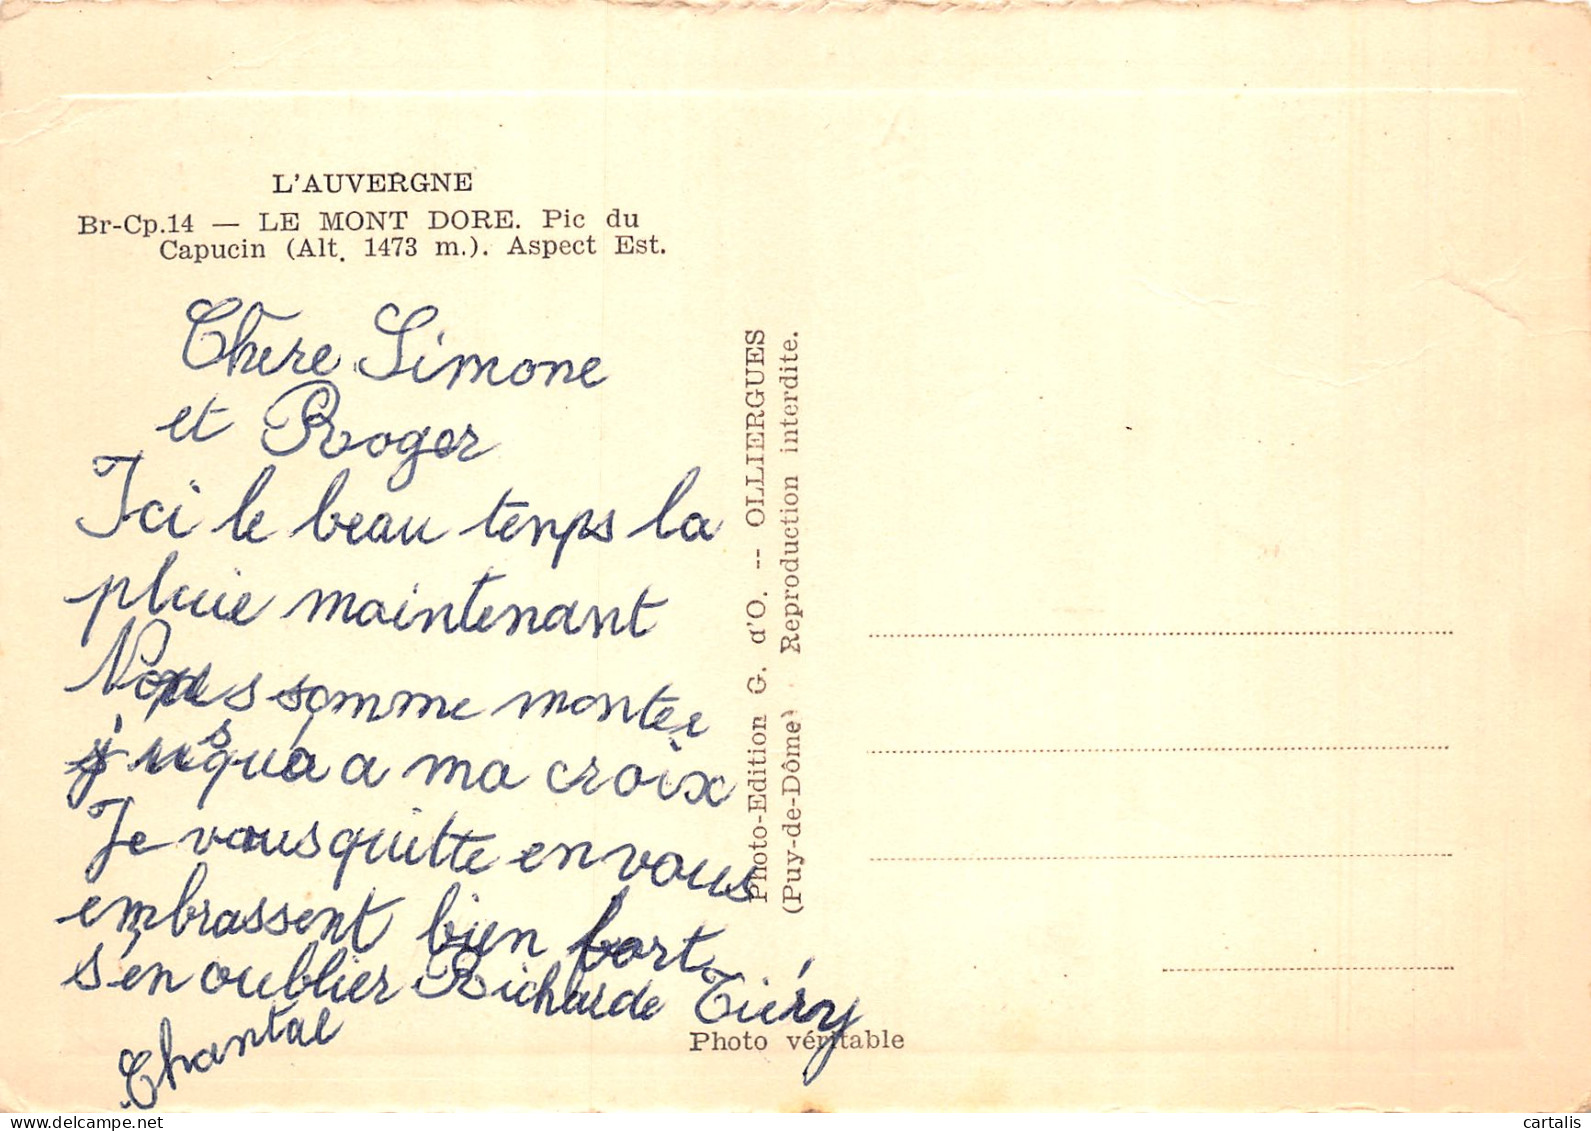 L'AUVERGNE
Br-Cp.14 — LE MONT DORE. Pic du
Capucin (Alt. 1473 m.). Aspect Est.
Chère Simone
et Roger
Ici le beau temps la
pluie maintenant
Nous somme montée
j'usqua a ma croix
Je vous quitte en vous
embrassent bien fort
s'en oublier Richarde Tiéry
Chantal
Photo-Edition G. d'O. -- OLLIERGUES
(Puy-de-Dôme) Reproduction interdite.
Photo véritable
delcampe.net
cartalis